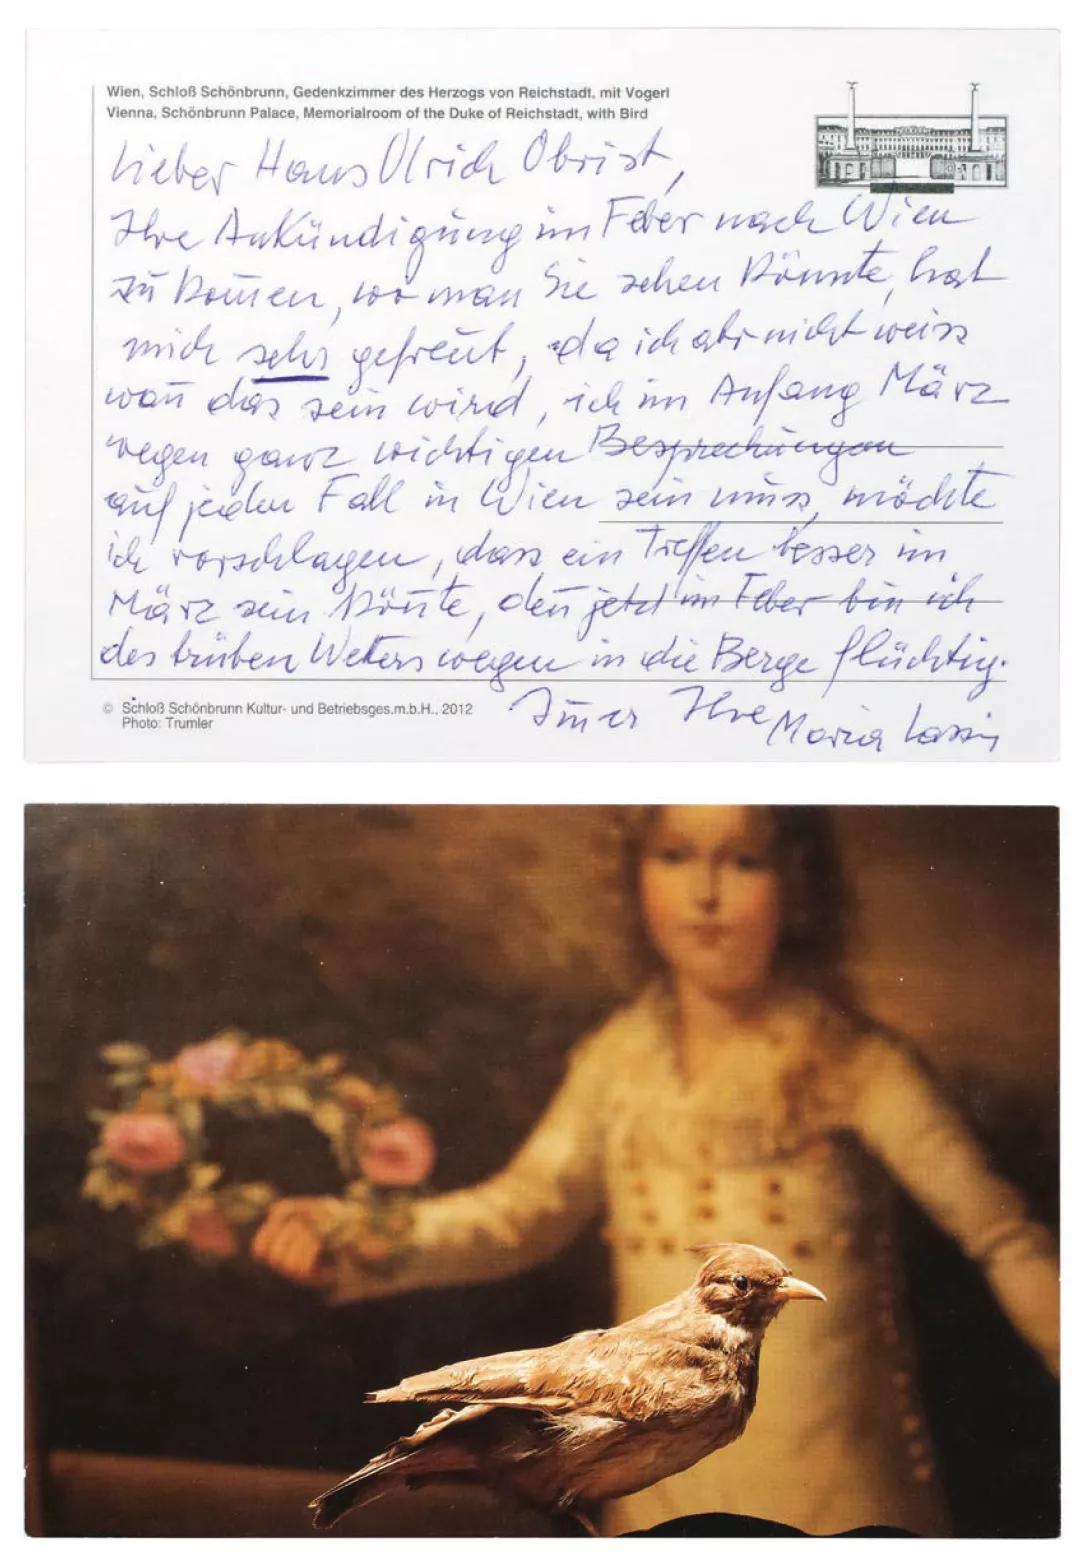 Wien, Schloß Schönbrunn, Gedenkzimmer des Herzogs von Reichstadt, mit Vogerl
Vienna, Schönbrunn Palace, Memorialroom of the Duke of Reichstadt, with Bird
Lieber Hans Ulrich Obrist,
Ihre Ankündigung im Feber nach Wien
zu kom̅en, wo man Sie sehen könnte, hat
mich sehr gefreut, da ich abr nicht weiss
wan̅ das sein wird, ich im Anfang März
wegen ganz wichtigen Besprechungen
auf jeden Fall in Wien sein muss, möchte
ich vorschlagen, dass ein Treffen besser im
März sein kön̅te, den̅ jetzt im Feber bin ich
des trüben Wetters wegen in die Berge flüchtig.
Im̅er Ihre Maria Lassnig
© Schloß Schönbrunn Kultur- und Betriebsges.m.b.H., 2012
Photo: Trumler